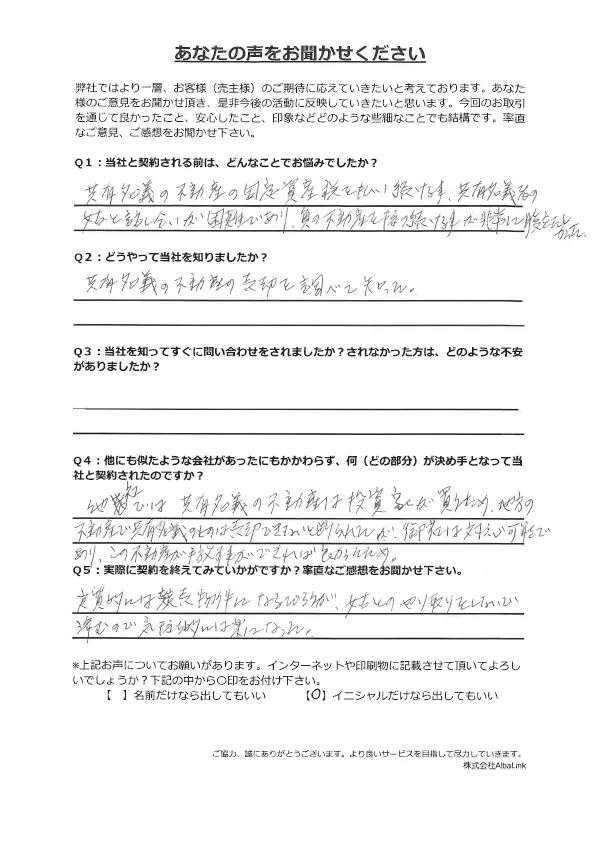 あなたの声をお聞かせください
弊社ではより一層、お客様（売主様）のご期待に応えていきたいと考えております。あなた
様のご意見をお聞かせ頂き、是非今後の活動に反映していきたいと思います。今回のお取引
を通じて良かったこと、安心したこと、印象などどのような些細なことでも結構です。率直
なご意見、ご感想をお聞かせ下さい。
Q１：当社と契約される前は、どんなことでお悩みでしたか？
共有名義の不動産の固定資産税を払い続ける事、共有名義者の
と話し合いが困難であり、負の不動産を持つ続ける事が非常に
Q２：どうやって当社を知りましたか？
共有名義の不動産の売却を調べて知った。
Q３：当社を知ってすぐに問い合わせをされましたか？されなかった方は、どのような不安
がありましたか？
Q４：他にも似たような会社があったにもかかわらず、何（どの部分）が決め手となって当
社と契約されたのですか？
他社では 共有名義の不動産は投資家しか買わないため、地方の
不動産で共有名義のものは売却できないと断られたが、御社は対応可能で
あり、この不動産が手放す事ができればと思ったため。
Q５：実際に契約を終えてみていかがですか？率直なご感想をお聞かせ下さい。
実質的には競売物件になるだろうが、 とのやり取りをしないで
済むので気持ち的には楽になった。
※上記お声についてお願いがあります。インターネットや印刷物に記載させて頂いてよろし
いでしょうか？下記の中から〇印をお付け下さい。
【 】名前だけなら出してもいい 【〇】イニシャルだけなら出してもいい
ご協力、誠にありがとうございます。より良いサービスを目指して尽力していきます。
株式会社AlbaLink